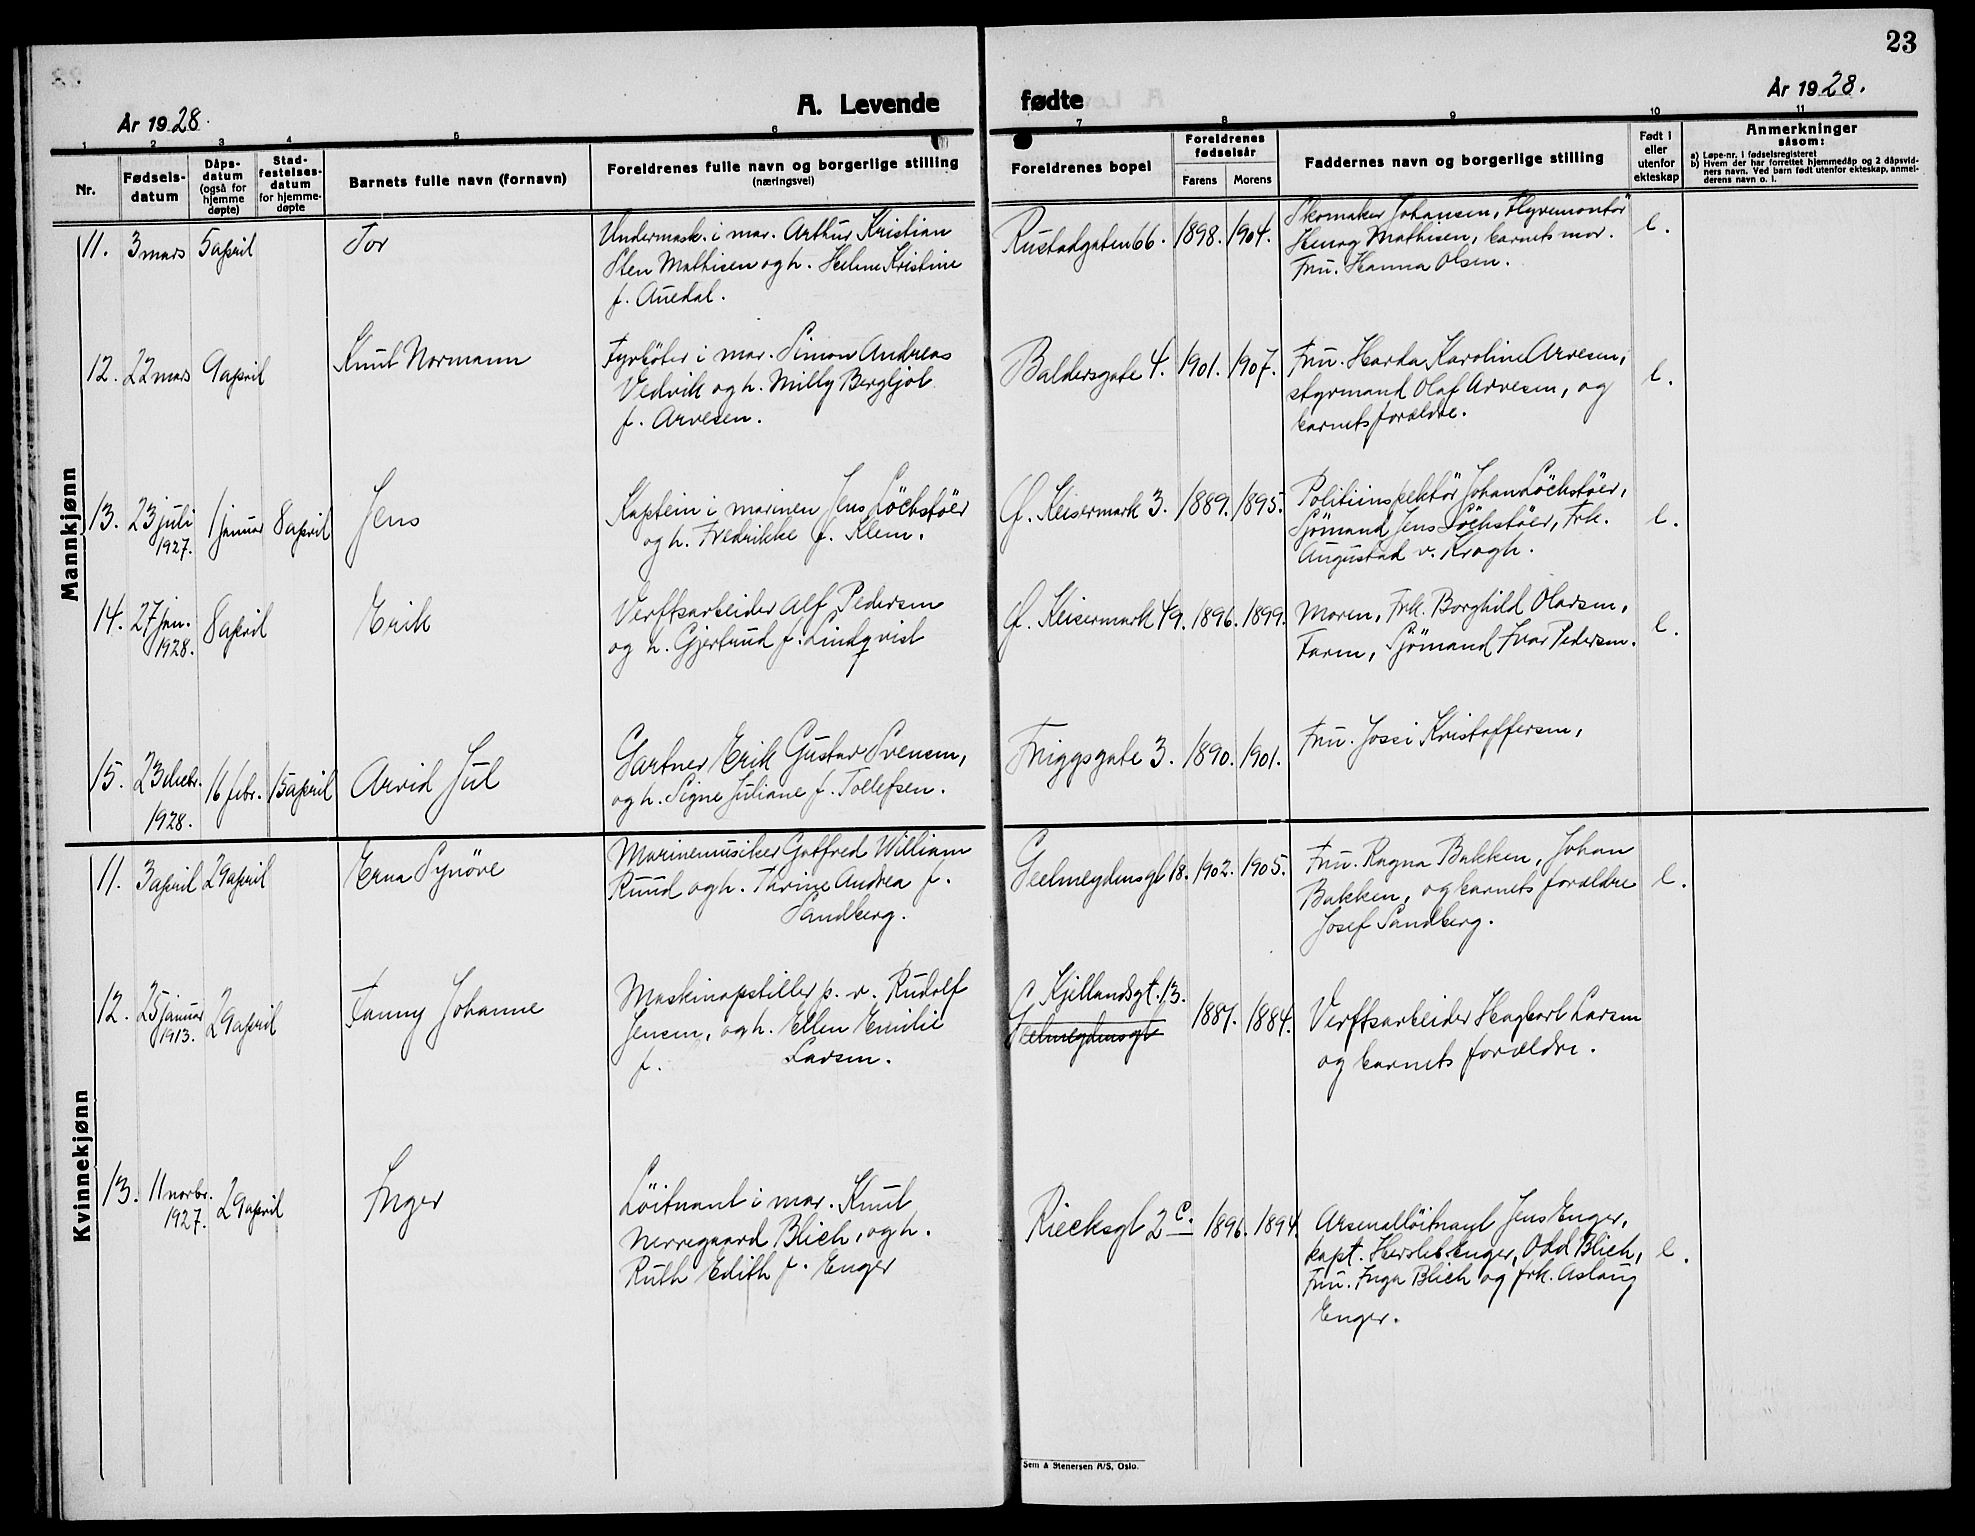 23
År 1928.
A. Levende
fødte
År 1928.
1 2 3 4 5 6 7 8 9 10 11
Nr.
Fødsels-
datum
Dåps-
datum
(også for
hjemme
døpte)
Stad-
festelses-
datum
for hjemme-
døpte
Barnets fulle navn (fornavn)
Foreldrenes fulle navn og borgerlige stilling
(næringsvei)
Foreldrenes bopel
Foreldrenes
fødselsår
Farens Morens
Faddernes navn og borgerlige stilling
Født i
eller
utenfor
ekteskap
Anmerkninger
såsom:
a) Løpe-nr. i fødselsregisteret
b) Hvem der har forrettet hjemmedåp og 2 dåpsvid-
ners navn. Ved barn født utenfor ekteskap, anmel-
derens navn o. l.
Mannkjønn
11. 3 mars 5 april Tor
Undermask. i mar. Arthur Kristian
Sten Mathisen og h. Helene Kristine
f. Auedal.
Rustadgaten 66. 1898. 1904.
Skomaker Johansen, Flyvemontör
Mathisen, barnets mor.
Fru. Hanna Olsen.
e.
12. 22 mars 9 april Knut Normann
Fyrböter i mar. Simon Andreas
Vedvik og h. Milly Bergljot
f. Arvesen.
Baldersgate 4. 1901. 1907.
Fru. Harda Karoline Arvesen,
styrmand Olaf Arvesen, og
barnets forældre.
e.
13. 23 juli
1927. 1 januar 8 april Jens
Kaptein i marinen Jens Löchstöer
og h. Fredrikke f. Klem.
Gl. Keisermark 3. 1889. 1895.
Politiinspektör Johan Löchstöer,
Sjömand Jens Löchstöer, Frk.
Augustad v. Krogh.
e.
14. 27 jan.
1928. 8 april Erik
Verftsarbeider Alf Pedersen
og h. Gjertrud f. Lindqvist
Gl. Keisermark 49. 1896. 1899.
Moren, Frk. Borghild Olavsen,
Faren, Sjömand Ivar Pedersen.
e.
15. 23 debr.
1928. 16 febr. 15 april Arvid Jul
Gartner Erik Gustav Svensen,
og h. Signe Juliane f. Tollefsen.
Friggsgate 3. 1890. 1901.
Fru. Jossi Kristoffersen,
Kvinnekjønn
11. 3 april 29 april Erna Synöve
Marinemusiker Gotfred William
Ruud og h. Thrine Andrea f.
Sandberg.
Geelmeydensgt 18. 1902. 1905.
Fru. Ragna Bakken, Johan
Bakken, og barnets forældre
Josef Sandberg.
e.
12. 25 januar
1913. 29 april Fanny Johanne
Maskinopstiller p. v. Rudolf
Jensen, og h. Ellen Emilie
f. Larsen.
Kjellandsgt. 13.
Geelmeydensgt
1887. 1884.
Verftsarbeider Hagbart Larsen
og barnets forældre.
13. 11 novbr.
1927. 29 april Inger
Löitnant i mar. Knut
Nerregaard Blich, og h.
Ruth Edith f. Enger
Riecksgt 2 c. 1896. 1894.
Arsenallöitnant Jens Enger,
kapt. Hersleb Enger, Odd Blich,
Fru. Inga Blich og frk. Aslaug
Enger.
e.
Sem & Stenersen A/S, Oslo.